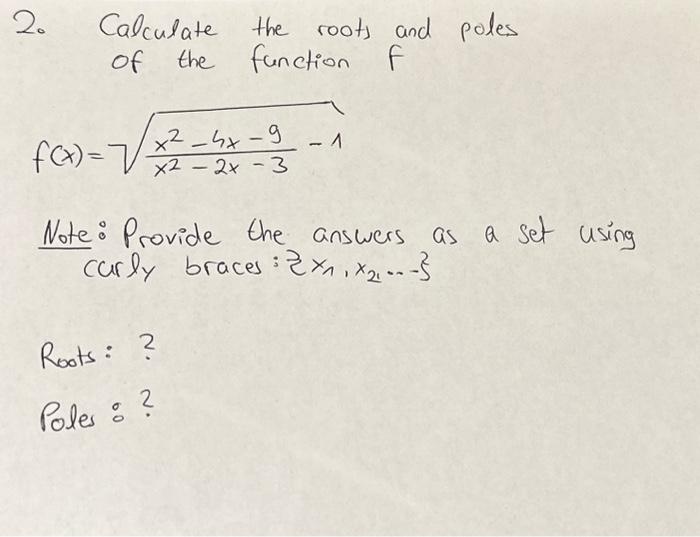 2. Calculate the roots and poles
of the function f
f(x) = √((x² - 4x - 9)/(x² - 2x - 3) - 1)
Note: Provide the answers as a set using
curly braces: {x₁, x₂, ...}
Roots: ?
Poles: ?